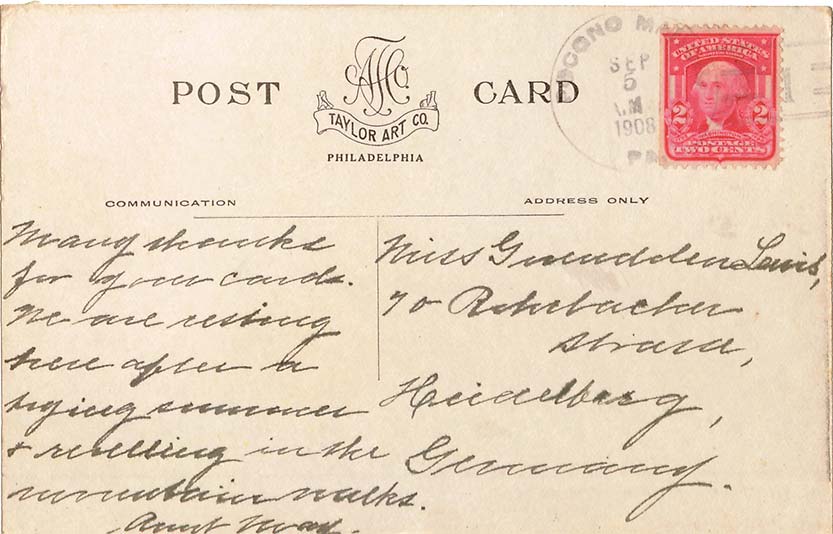 POCONO M
SEP
5
A.M
1908
PA
UNITED STATES
OF AMERICA
2 2
POSTAGE
TWO CENTS
POST CARD
TAYLOR ART CO.
PHILADELPHIA
COMMUNICATION
ADDRESS ONLY
Many thanks
for your cards.
We are resting
here after a
trying summer
& revelling in the
mountain walks.
Aunt
Miss Gwendolen Lewis,
70 Rohrbacher
strasse,
Heidelberg,
Germany.